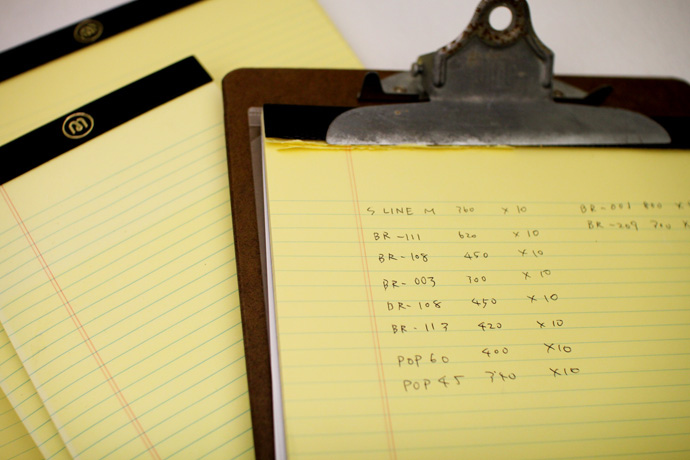 S LINE M 760 X 10
BR-111 620 X 10
BR-108 450 X 10
BR-003 700 X 10
BR-108 450 X 10
BR-113 420 X 10
POP 60 400 X 10
POP 45 340 X 10
BR-003
BR-209